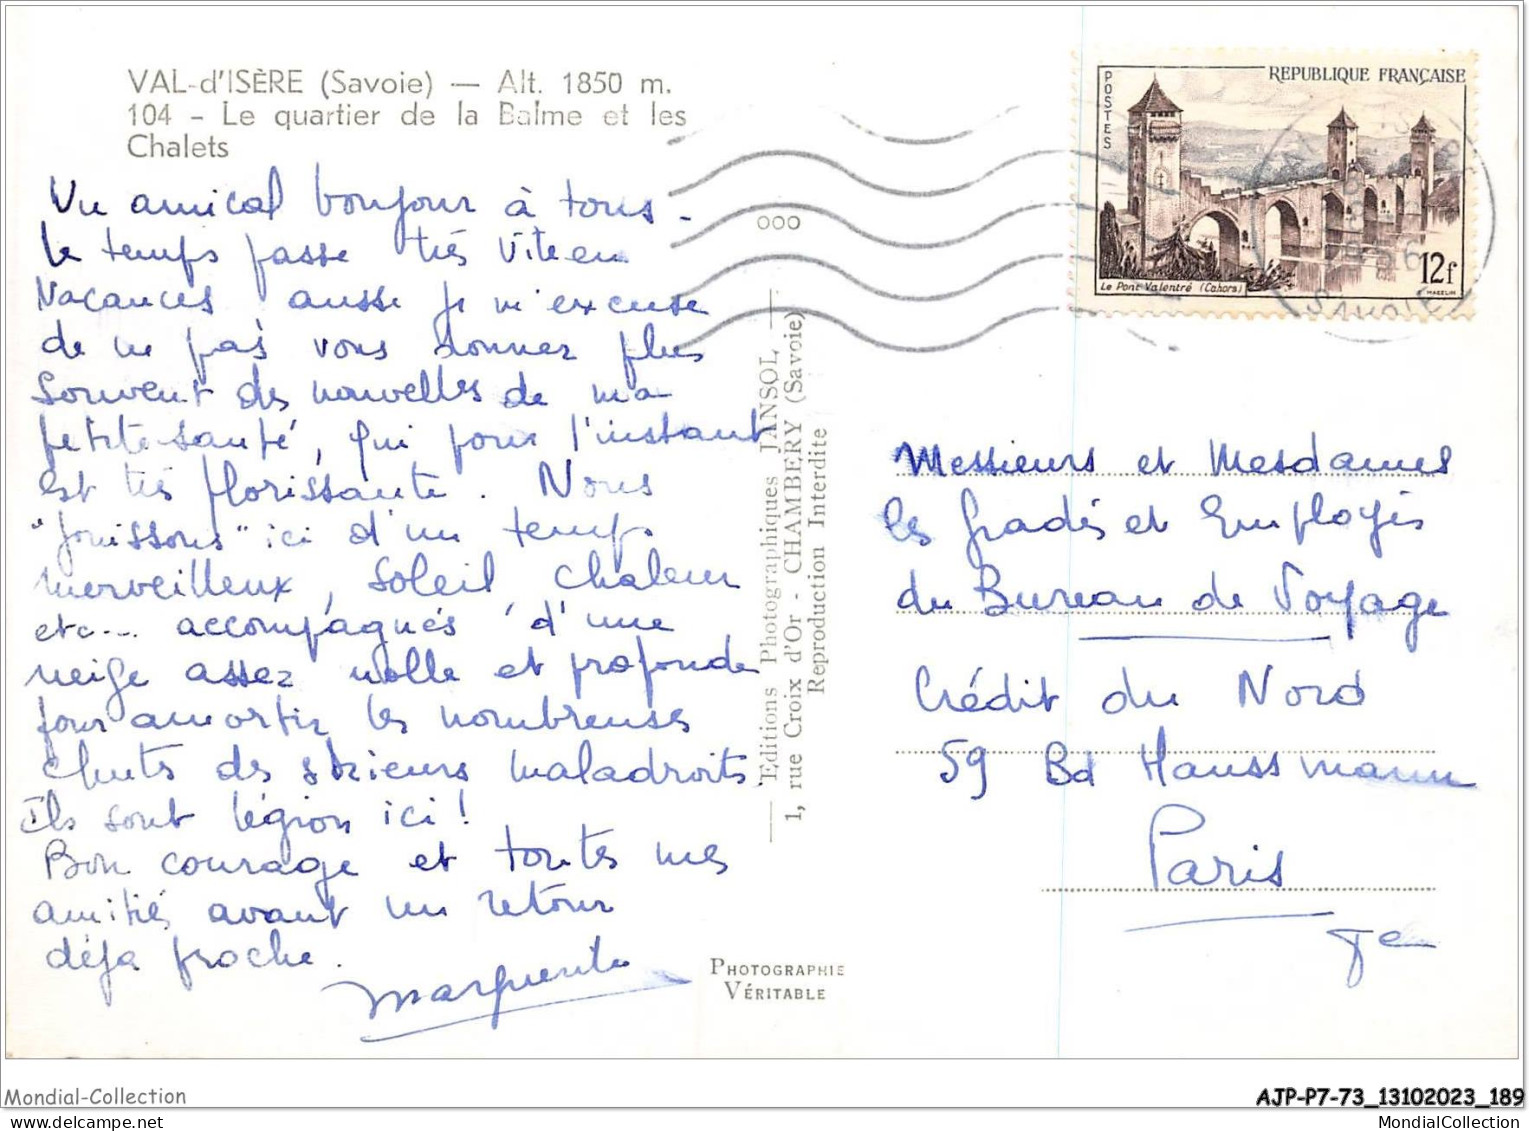 VAL-d'ISÈRE (Savoie) — Alt. 1850 m.
104 - Le quartier de la Balme et les
Chalets
Un amical bonjour à tous -
Le temps passe très vite en
vacances aussi je m'excuse
de ne pas vous donner plus
souvent des nouvelles de ma
petite santé, qui pour l'instant
est très florissante. Nous
"jouissons" ici d'un temps
merveilleux, soleil chaleur
etc... accompagnés d'une
neige assez molle et profonde
pour amortir les nombreuses
chutes des skieurs maladroits.
Ils sont légion ici!
Bon courage et toutes mes
amitiés avant un retour
déjà proche.
Marguerite
ooo
— Editions Photographiques JANSOL —
1, rue Croix d'Or - CHAMBERY (Savoie)
Reproduction Interdite
PHOTOGRAPHIE
VÉRITABLE
POSTES
REPUBLIQUE FRANÇAISE
12f
Le Pont Valentré (Cahors)
MAZELIN
SAVOIE
Messieurs et Mesdames
les gradés et Employés
du Bureau de Voyage
Crédit du Nord
59 Bd Haussmann
Paris
Mondial-Collection
delcampe.net
AJP-P7-73_13102023_189
MondialCollection